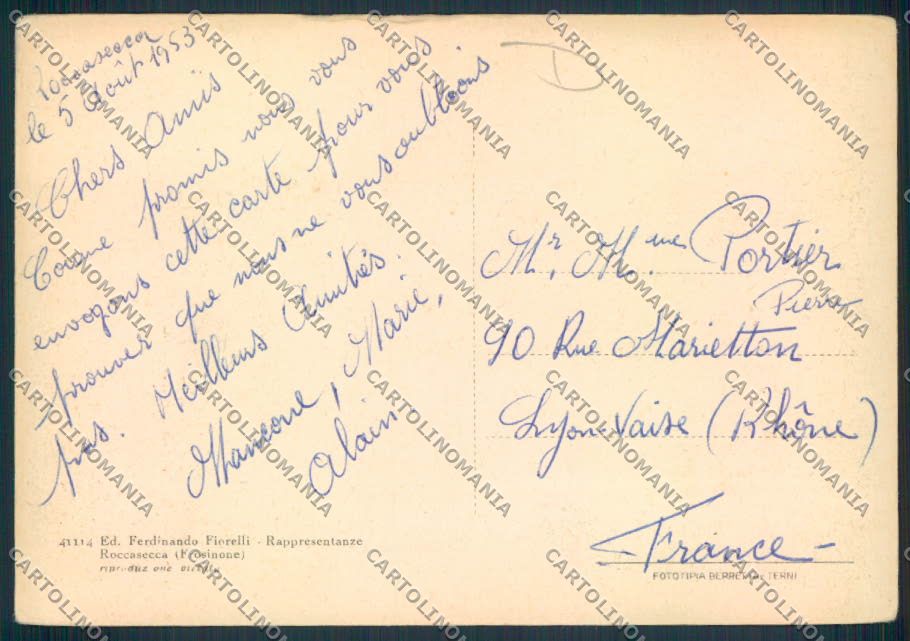 Roccasecca
le 5 Août 1953
Chers Amis
Comme promis nous vous
envoyons cette carte pour vous
prouver que nous ne vous oublions
pas. Meilleurs Amitiés.
Marie,
Alain
Mr. Mme. Portier
Pierre
90 Rue Marietton
Lyon Vaise (Rhône)
France
41114 Ed. Ferdinando Fiorelli - Rappresentanze
Roccasecca (Frosinone)
FOTOTIPIA BERRETTA - TERNI
CARTOLINOMANIA